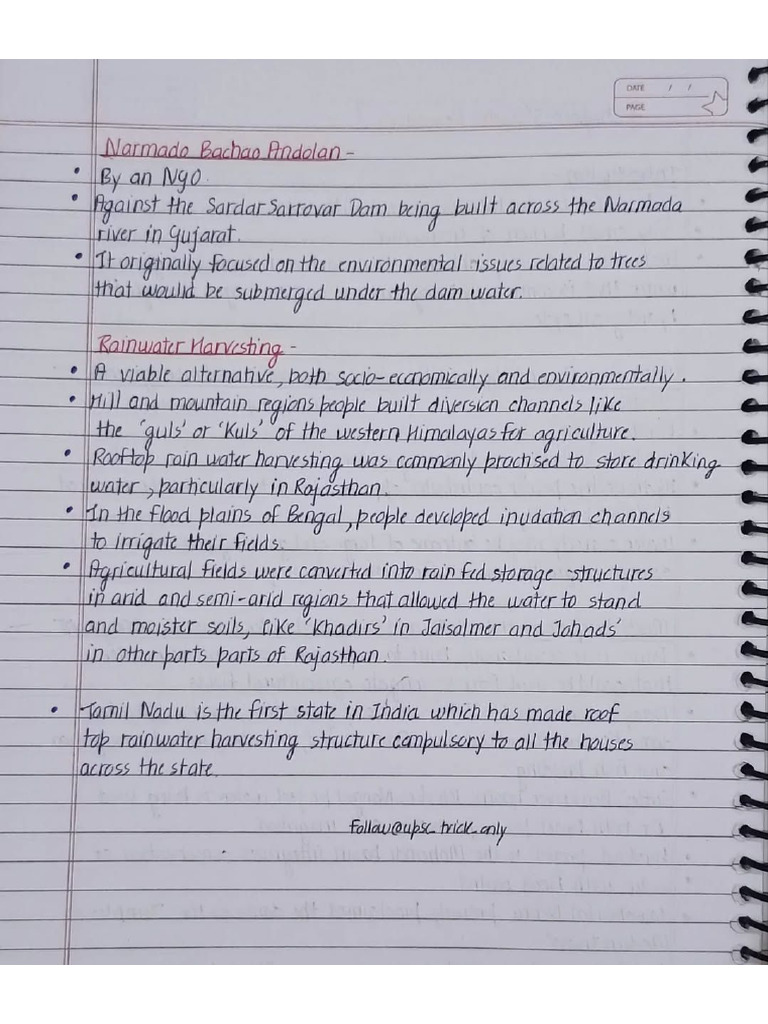 DATE / /
PAGE
Narmado Bachao Andolan -
• By an NGO.
• Against the Sardar Sarrovar Dam being built across the Narmada
river in Gujarat.
• It originally focused on the environmental issues related to trees
that would be submerged under the dam water.
Rainwater Harvesting -
• A viable alternative, both socio-economically and environmentally.
• Hill and mountain regions people built diversion channels like
the 'guls' or 'Kuls' of the western Himalayas for agriculture.
• Rooftop rain water harvesting was commonly practised to store drinking
water, particularly in Rajasthan.
• In the flood plains of Bengal, people developed inudation channels
to irrigate their fields.
• Agricultural fields were converted into rain fed storage structures
in arid and semi-arid regions that allowed the water to stand
and moister soils, like 'Khadirs' in Jaisalmer and Johads'
in other parts parts of Rajasthan.
• Tamil Nadu is the first state in India which has made roof
top rainwater harvesting structure compulsory to all the houses
across the state.
Follow@upsc_trick_only